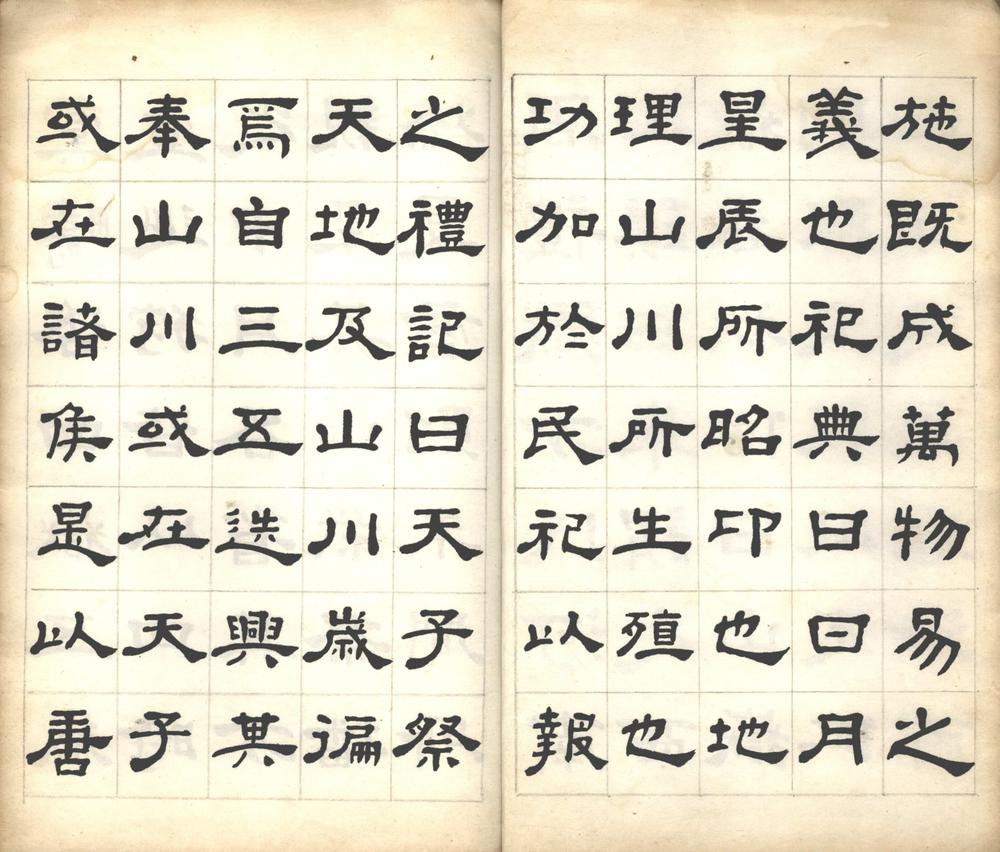 施既成萬物易之
義也祀典曰日月
星辰所昭卬也地
理山川所生殖也
功加於民祀以報
之禮記曰天子祭
天地及山川歲徧
焉自三五迭興其
奉山川或在天子
或在諸侯是以唐